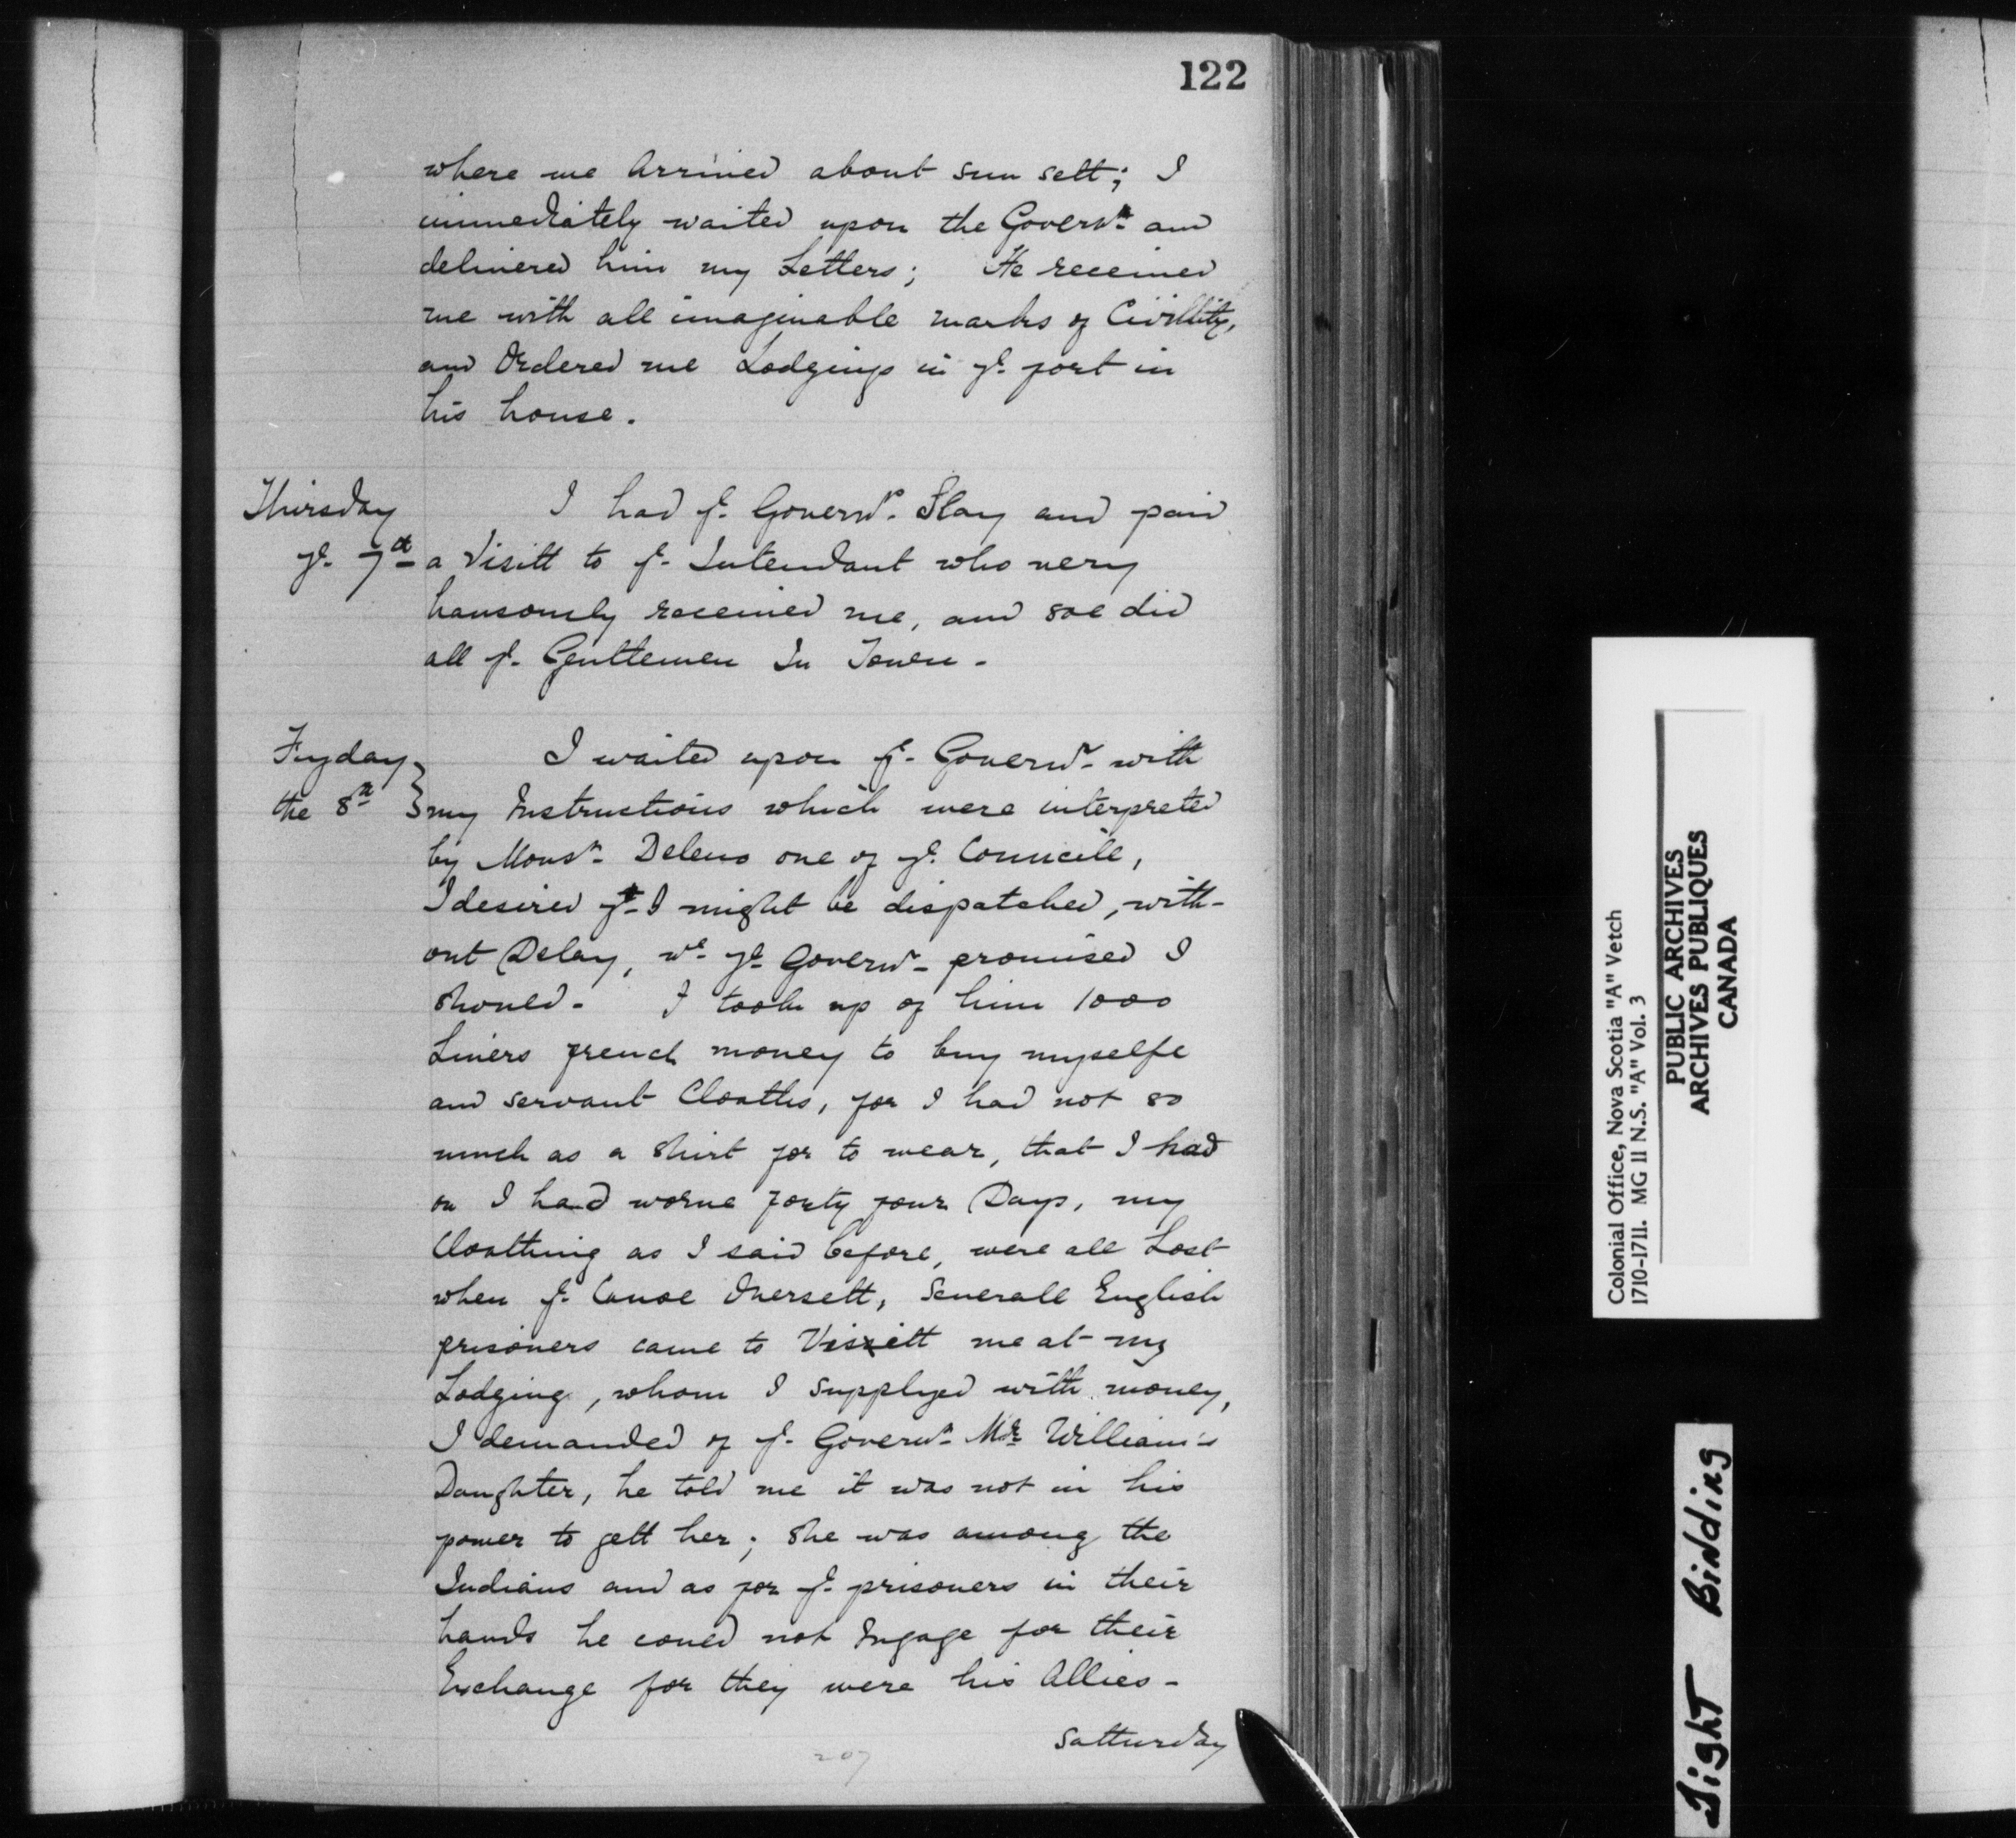 122
where we Arrived about sun sett; I
immediately waited upon the Governr. and
delivered him my Letters; He received
me with all imaginable marks of Civillity,
and Ordered me Lodgings in ye. fort in
his house.
Thursday
ye. 7th
I had ye. Governrs. Slay and paid
a Visitt to ye. Intendant who very
hansomly received me, and soe did
all ye. Genttemen In Towne.
Fryday
the 8th
I waited upon ye. Governr. with
my Instructions which were interpreted
by Monsr. Deleno one of ye. Councill,
I desired yt. I might be dispatched, with-
out Delay, wc. ye. Governr. promised I
should. I tooke up of him 1000
Livers french money to buy myselfe
and servant Cloaths, for I had not so
much as a Shirt for to wear, that I had
on I had worne forty four Days, my
Cloathing as I said before, were all Lost
when ye. Canoe Oversett, Severall English
prisoners came to Vissitt me at my
Lodging, whom I supplyed with money,
I demanded of ye. Governr. Mr. William's
Daughter, he told me it was not in his
power to gett her; She was among the
Indians and as for ye. prisoners in their
hands he could not Ingage for their
Exchange for they were his Allies -
Satturday
207
Colonial Office, Nova Scotia "A" Vetch
1710-1711. MG 11 N.S. "A" Vol. 3
PUBLIC ARCHIVES
ARCHIVES PUBLIQUES
CANADA
Tight Binding